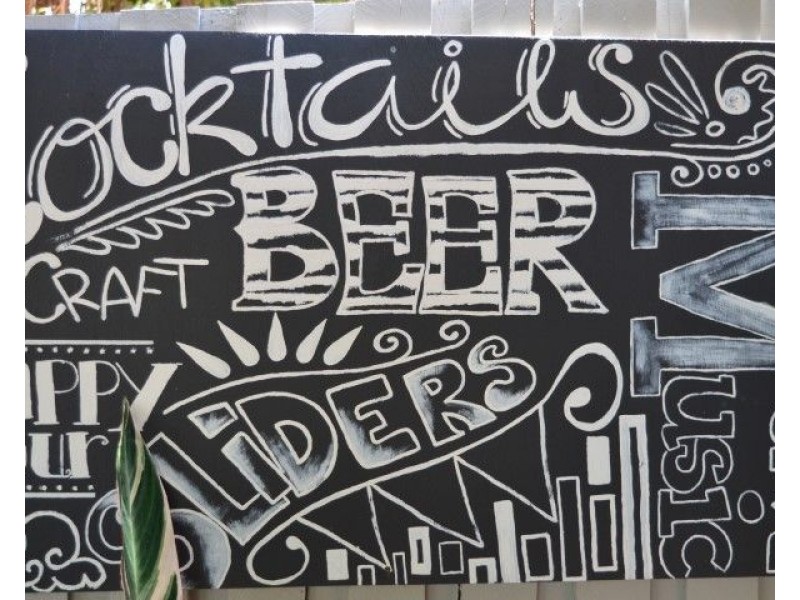 Cocktails
CRAFT BEER
appy
our
SLIDERS
Music